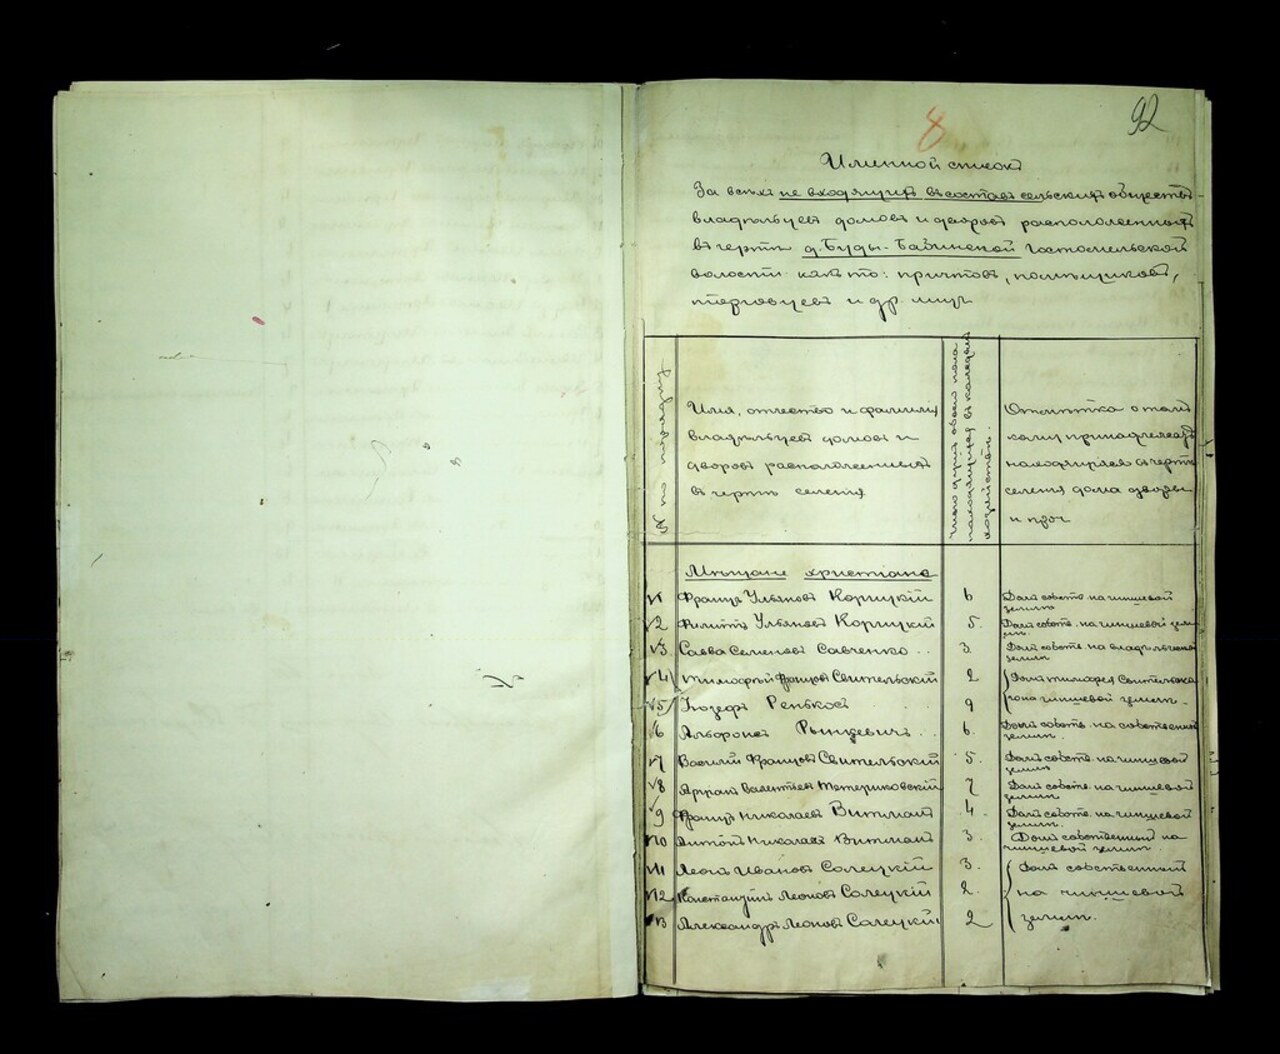 92
8
Именной списокъ
За всѣхъ не входящихъ въ составъ сельскихъ обществъ
владѣльцевъ домовъ и дворовъ расположенныхъ
въ чертѣ д. Буды-Бабинской Гостомельской
волости какъ то: причтовъ, помѣщиковъ,
торговцевъ и др. лицъ
№ по порядку
Имя, отчество и фамилія
владѣльцевъ домовъ и
дворовъ расположенныхъ
въ чертѣ селенія
Число душъ обоего пола
находящихся въ каждомъ
хозяйствѣ.
Отмѣтка о томъ
кому принадлежатъ
находящіеся въ чертѣ
селенія дома дворы
и проч
Мѣщане христіане
1 Францъ Ульяновъ Корицкій 6 Домъ собств. на чиншевой
землѣ
2 Филиппъ Ульяновъ Корицкій 5. Домъ собств. на чиншевой зем
лѣ.
3. Савва Семеновъ Савченко .. 3. Домъ собств. на владѣльческой
землѣ
4 Тимофей Францовъ Свительскій 2 Домъ Тимофея Свительска
5 Іозефъ Ренькасъ 9 го на чиншевой землѣ.
6 Альфонсъ Рынцевичъ . 6. Домъ собств. на собственной
землѣ.
7 Василій Францовъ Свительскій 5. Домъ собств. на чиншевой
землѣ
8 Адамъ Валентьевъ Тетериковскій 7 Домъ собств. на чиншевой
землѣ
9 Францъ Николаевъ Витманъ 4. Домъ собств. на чиншевой
землѣ.
10 Антонъ Николаевъ Витманъ 3. Домъ собственный на
чиншевой землѣ.
11 Леонъ Ивановъ Солецкій 3. Домъ собственный
12 Константинъ Леоновъ Солецкій 2. на чиншевой
13 Александръ Леоновъ Солецкій 2 землѣ.